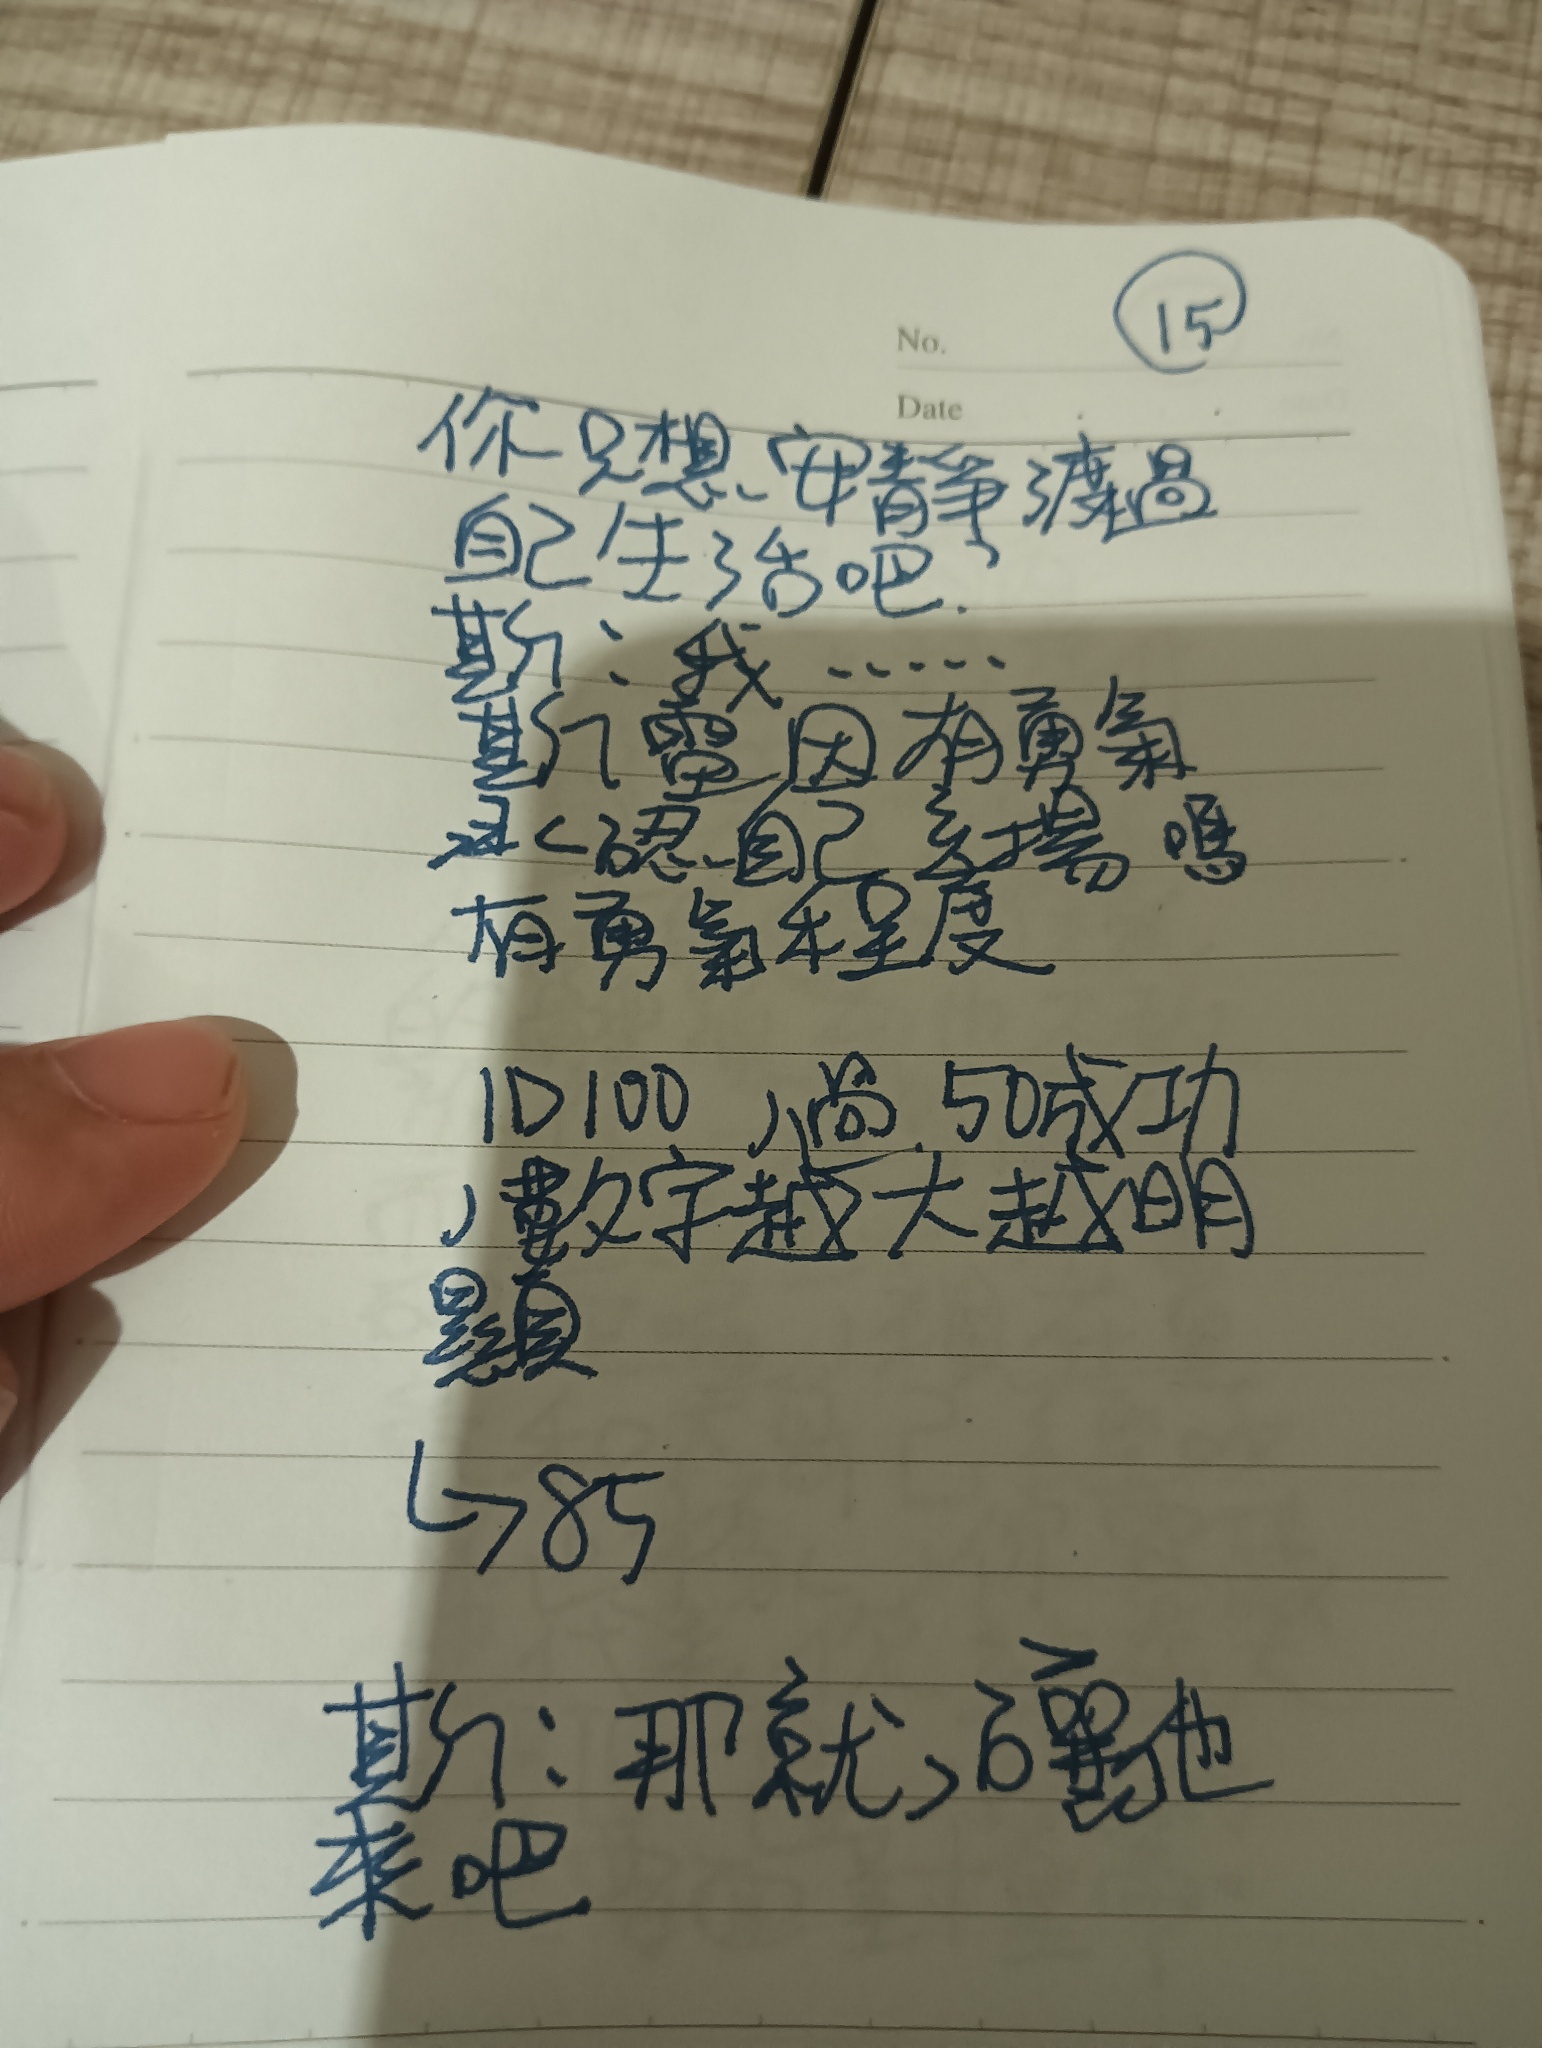 15
No.
Date
你只想安靜渡過
自己生活吧.
斯:我......
斯雷因有勇氣
承認自己立場嗎
有勇氣程度
1D100,尚.50成功
,數字越大越明
顯
↳85
斯:那就,讓他
來吧